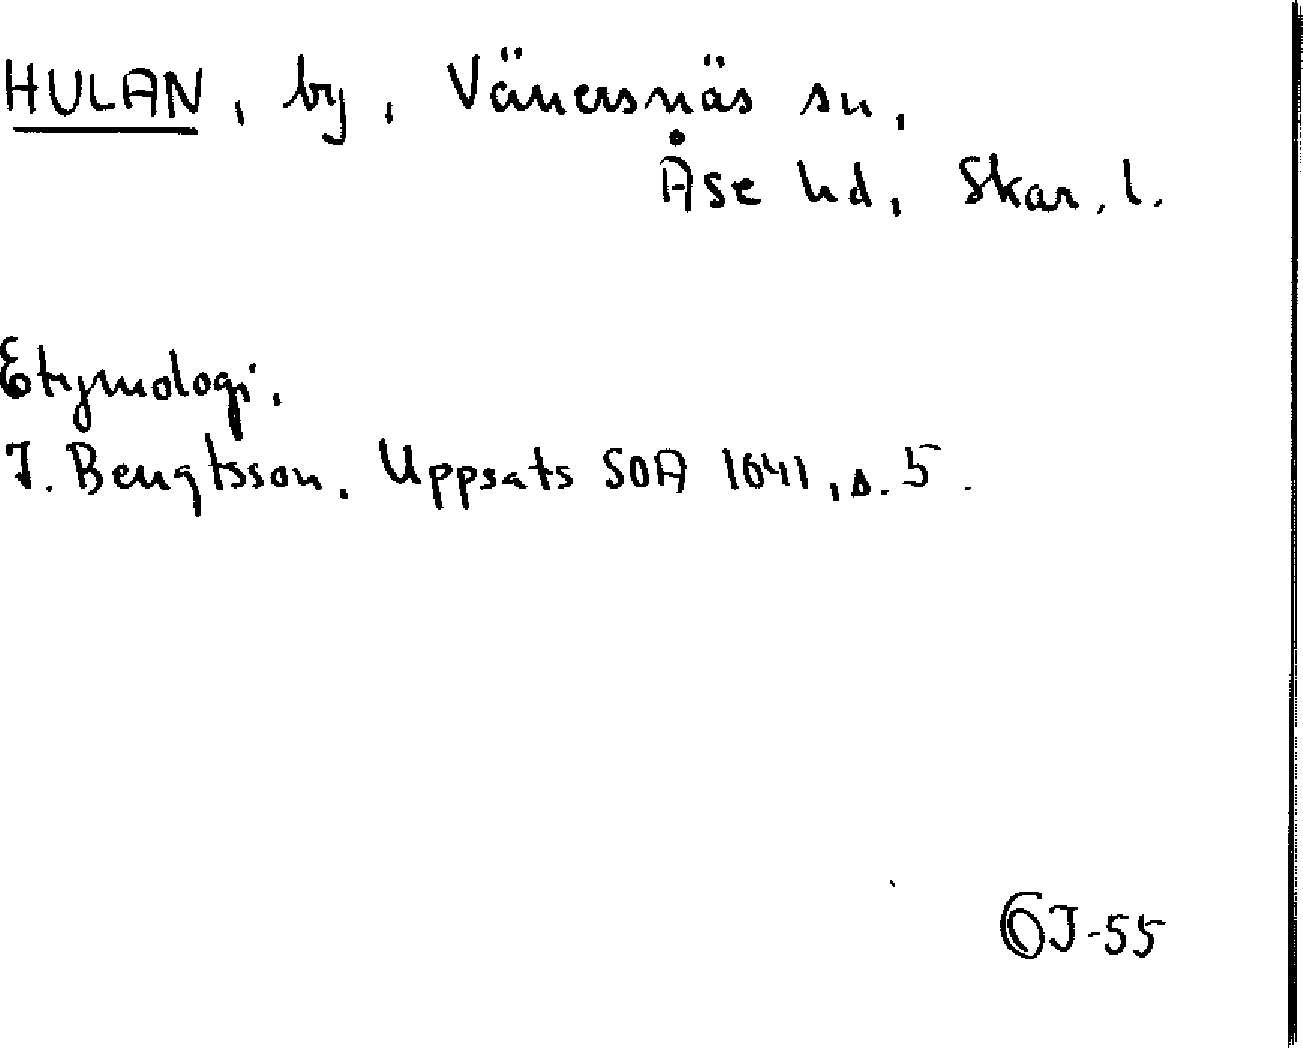 HULAN, by, Vänersnäs sn,
Åse hd, Skar. l.
Etymologi.
J. Bengtsson. Uppsats SOA 1641, s. 5.
GJ-55